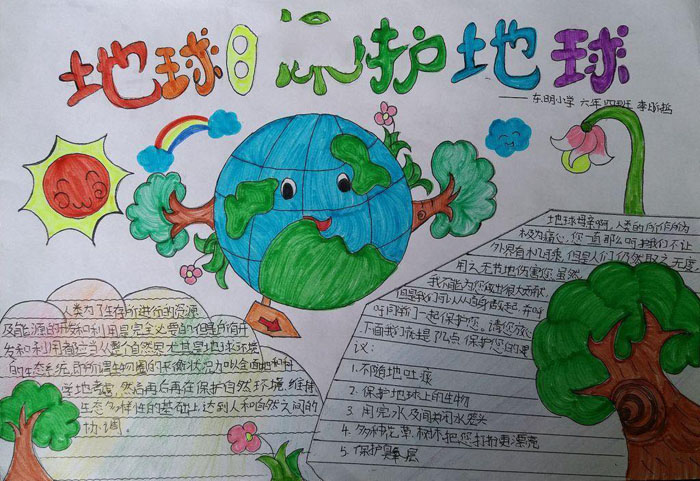 地球日 保护地球
——东明小学 六年四班
人类为了生存所进行的资源
及能源的开发和利用是完全必要的但是所有开
发和利用都应当从整个自然界尤其是地球环境
的生态系统,即所谓生物圈的平衡状况加以全面地和科
学地考虑,然后再后再在保护自然环境,维持
生态多样性的基础上,达到人和自然之间的
协调。
地球母亲啊,人类的所作所为
极为痛心,您一直那么呵护我们不让
外界有机可乘,但是人们仍然取之无度
用之无节地伤害您,虽然
我不能为您做出很大贡献,
但是我们可以从自身做起,并呼
吁同我们一起保护您。请您放心
下面我们就提几点保护您的建
议:
1.不随地吐痰
2.保护地球上的生物
3.用完水及时关闭水龙头
4.多种花草,树木把您打扮更漂亮
5.保护臭氧层